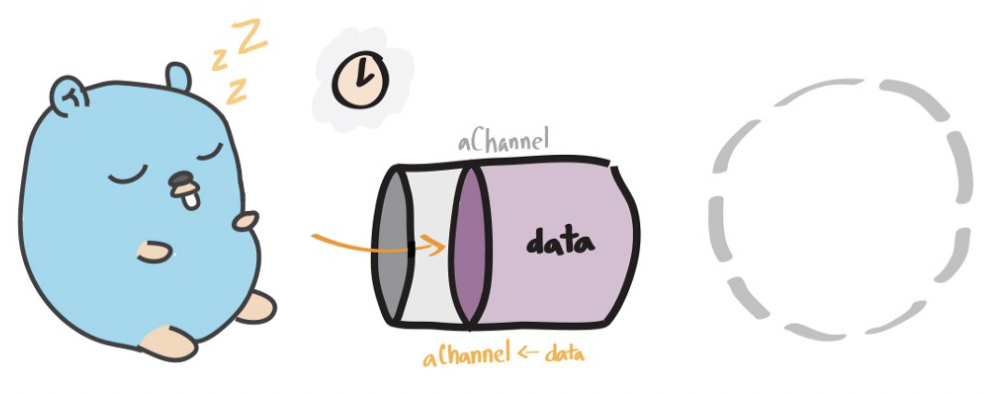 z Z
z
aChannel
data
aChannel <- data